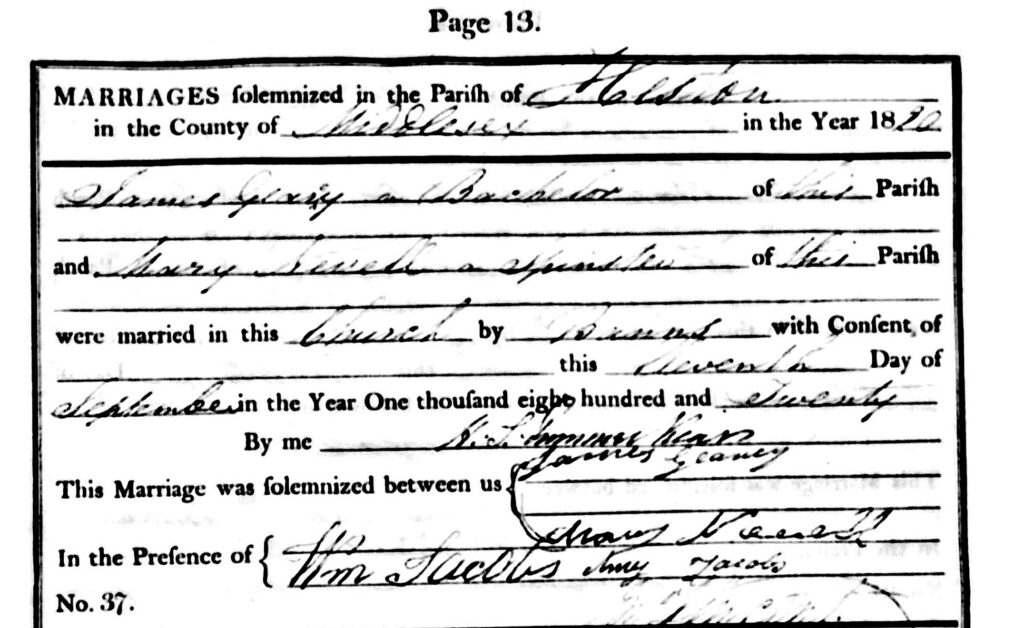 Page 13.
MARRIAGES solemnized in the Parish of Heston
in the County of Middlesex in the Year 1820
James Geary a Bachelor of this Parish
and Mary Newell a Spinster of this Parish
were married in this Church by Banns with Consent of
this Seventh Day of
September in the Year One thousand eight hundred and Twenty
By me H. S.
This Marriage was solemnized between us { James Geaney
Mary
In the Presence of { Wm Jacobs Amy Jacobs
No. 37.